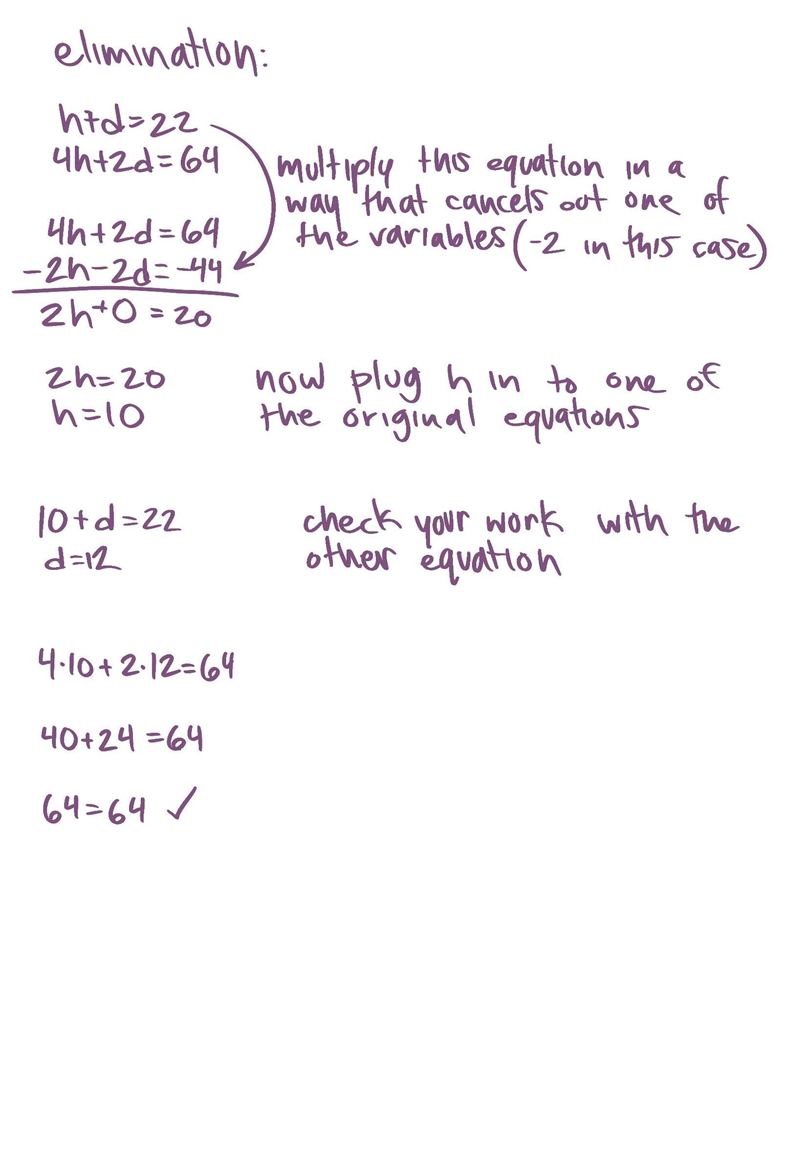 elimination:
h+d=22
4h+2d=64
multiply this equation in a
way that cancels out one of
the variables (-2 in this case)
4h+2d=64
-2h-2d=-44
2h+0=20
2h=20
h=10
now plug h in to one of
the original equations
10+d=22
d=12
check your work with the
other equation
4·10+2·12=64
40+24=64
64=64 ✓